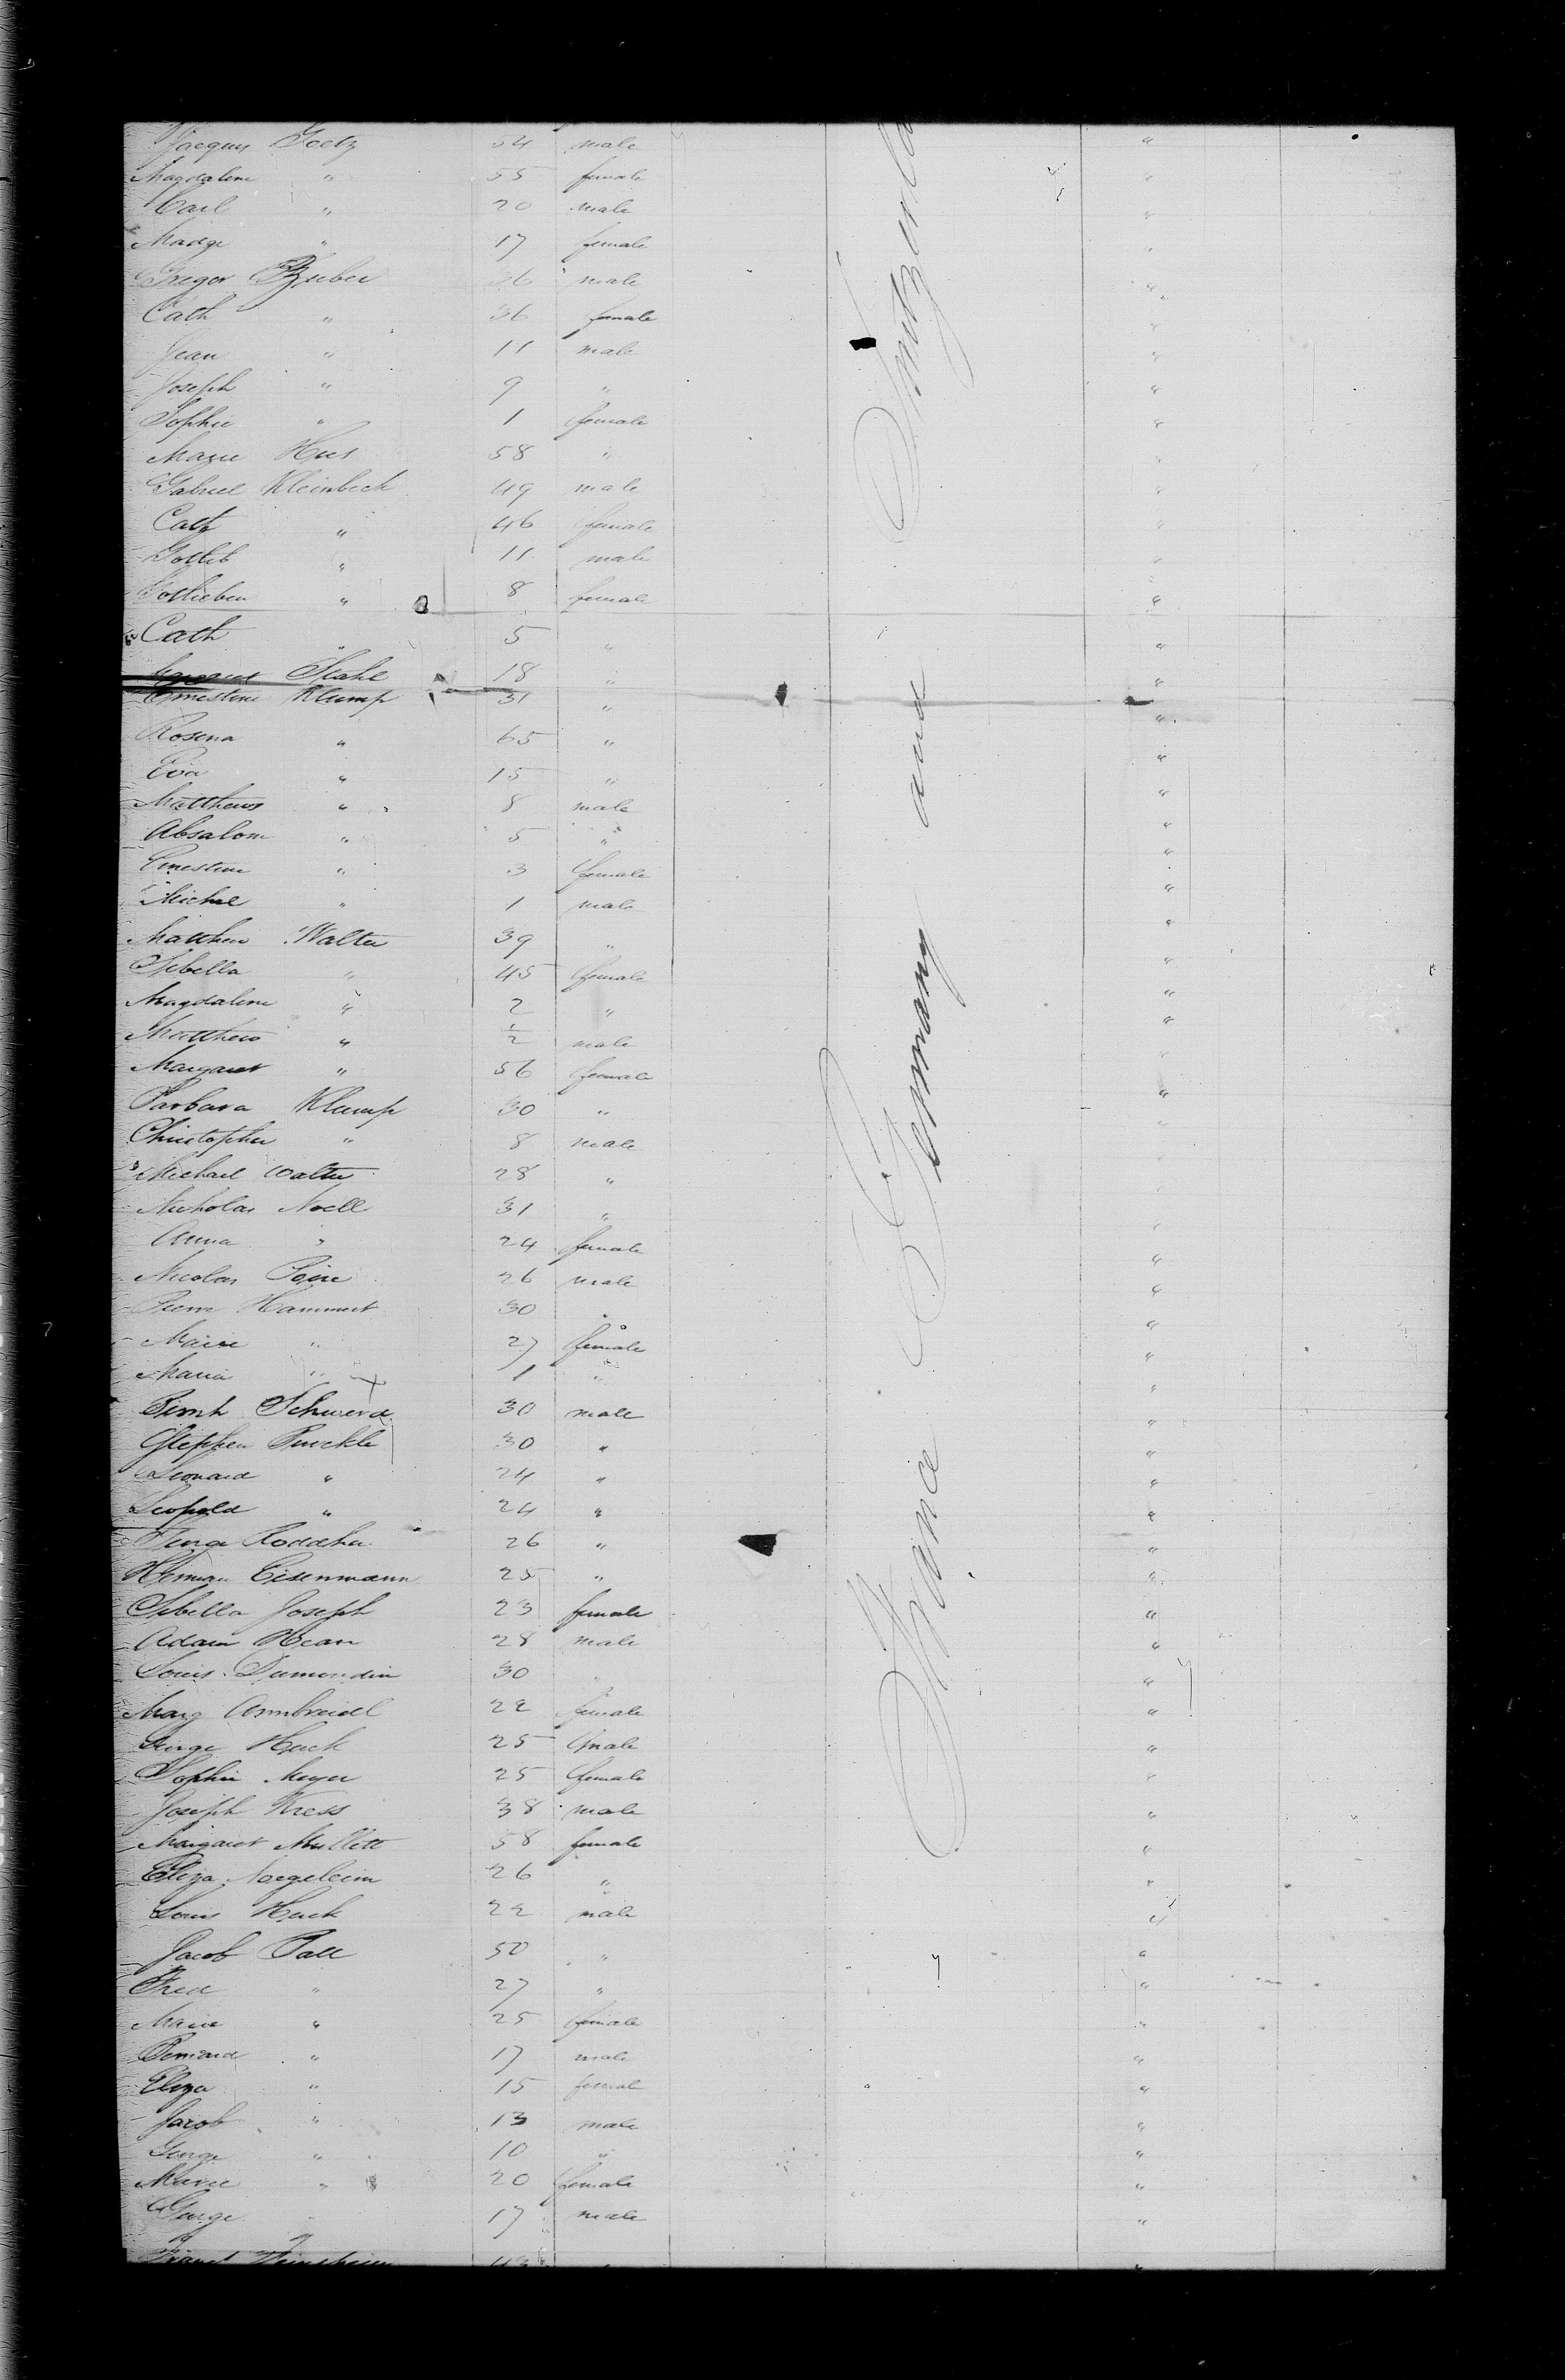 Jacques Goetz 54 male "
Magdalene " 55 female "
Carl " 20 male "
Madge " 17 female "
Gregor Zuber 36 male "
Cath " 36 female "
Jean " 11 male "
Joseph " 9 " "
Sophie " 1 female "
Marie Hus 58 " "
Gabriel Kleinbeck 49 male "
Cath " 46 female "
Gottleb " 11 male "
Gottlieben " 8 female "
Cath " 5 " "
Stahl 18 " "
Ernestine Klump 31 " "
Rosena " 65 " "
Eva " 15 " "
Matthews " 8 male "
Absalom " 5 " "
Ernestine " 3 female "
Michel " 1 male "
Matthew Walter 39 " "
Sibella " 45 female "
Magdalene " 2 " "
Matthew " 1/2 male "
Margaret " 56 female "
Barbara Klump 30 " "
Christopher " 8 male "
Michael Walter 28 " "
Nicholas Noell 31 " "
Anna " 24 female "
Nicolas 26 male "
Pierre Hammert 30 " "
Marie " 27 female "
Maria " 1 " "
Schwerd 30 male "
Stephen 30 " "
Leonard " 24 " "
Leopold " 24 " "
26 " "
Herman Eisenmann 25 " "
Sibella Joseph 23 female "
Adam Hean 28 male "
Louis Dumondin 30 " "
Marg Armbreidel 22 female "
George Huck 25 male "
Sophie Meyer 25 female "
Joseph Kress 38 male "
Margaret Mullett 58 female "
Eliza Naegeleim 26 " "
Louis Huck 22 male "
Jacob Pall 50 " "
Fred " 27 " "
Marie " 25 female "
Bernard " 17 male "
Eliza " 15 female "
Jacob " 13 male "
George " 10 " "
Marie " 20 female "
George " 17 male "
France Germany and